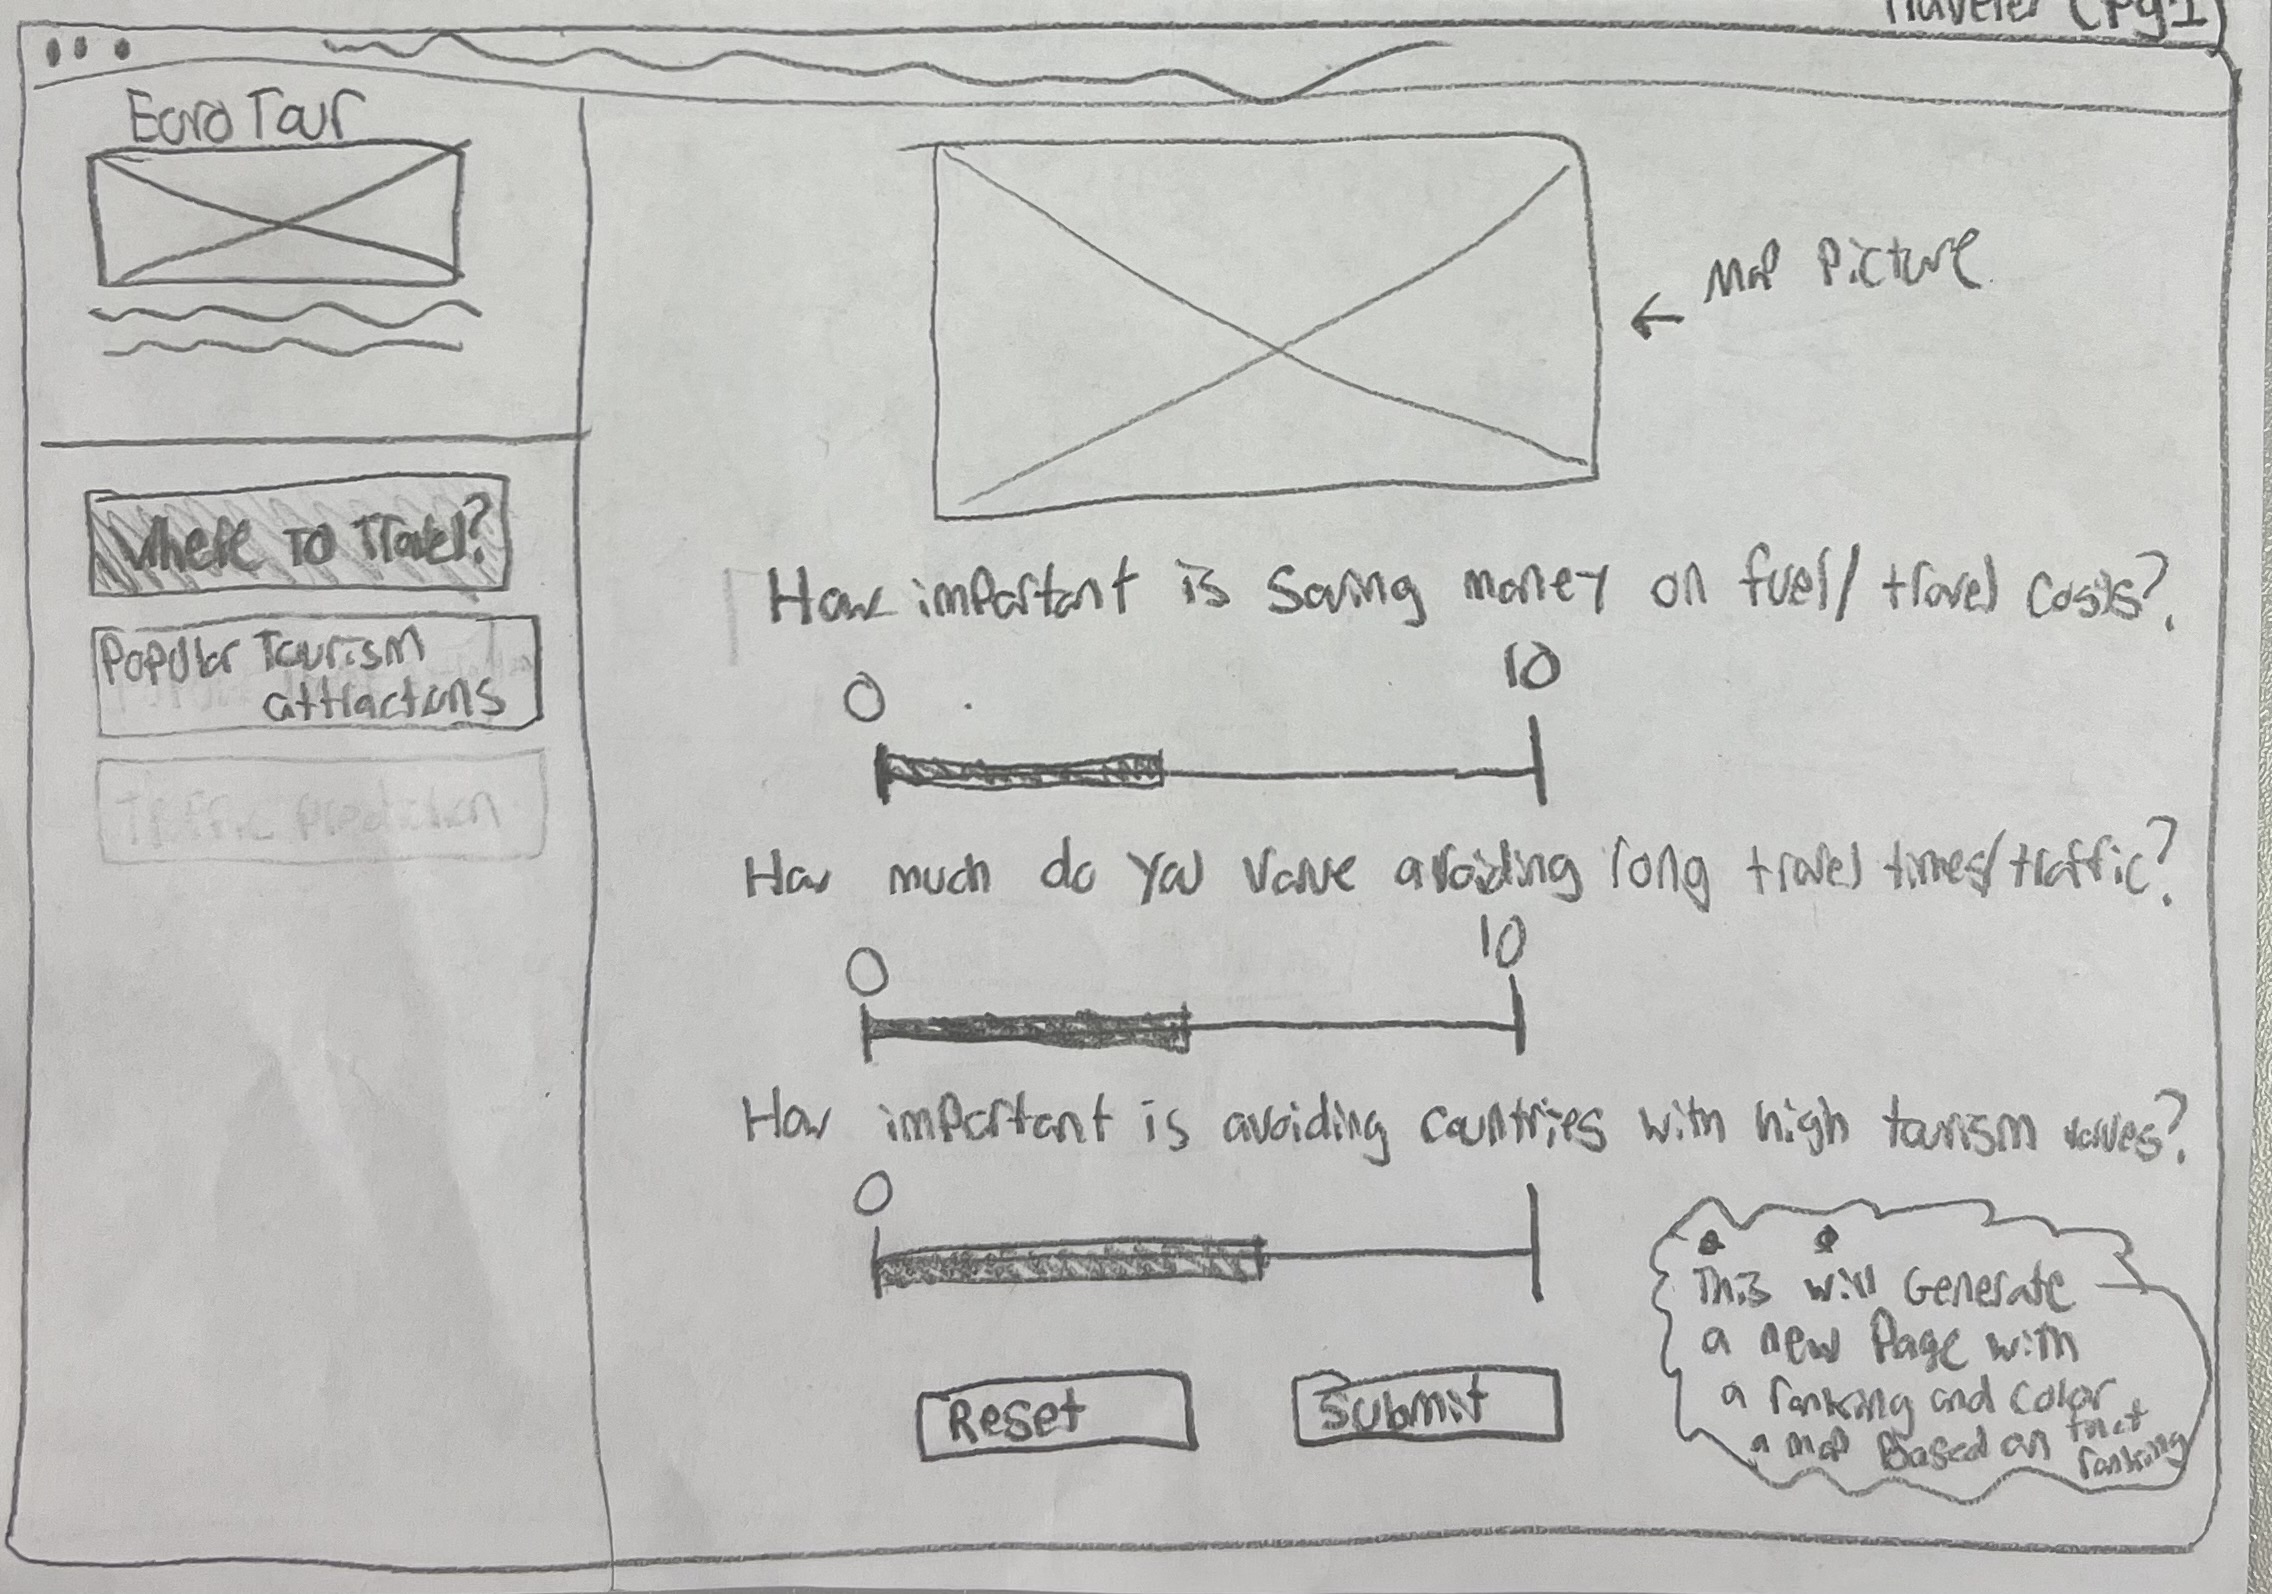 Traveler (Pg.1)
Euro Tour
Where To Travel?
Popular Tourism
attractons
Traffic Prediction
← Map Picture
How important is Saving money on fuel/travel costs?
0 10
How much do you value avoiding long travel times/traffic?
0 10
How important is avoiding countries with high tourism values?
0
Reset Submit
This will Generate
a new Page with
a ranking and color
a map Based on that
ranking